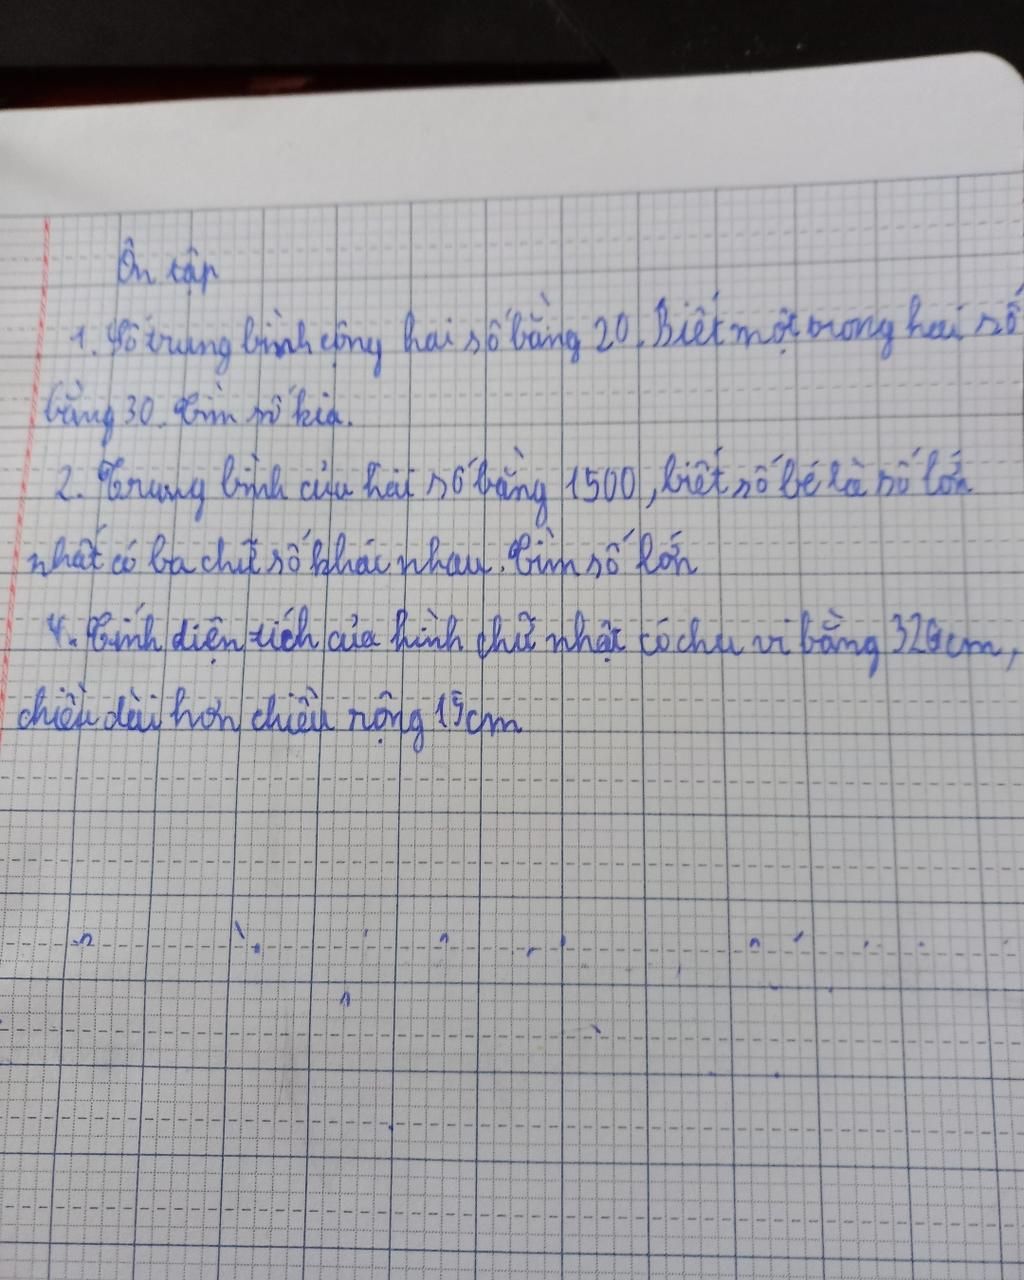 Ôn tập
1. Số trung bình cộng hai số bằng 20. Biết một trong hai số
bằng 30. Tìm số kia.
2. Trung bình của hai số bằng 1500, biết số bé là số lớn
nhất có ba chữ số khác nhau. Tìm số lớn
4. Tính diện tích của hình chữ nhật có chu vi bằng cm,
chiều dài hơn chiều rộng 15cm